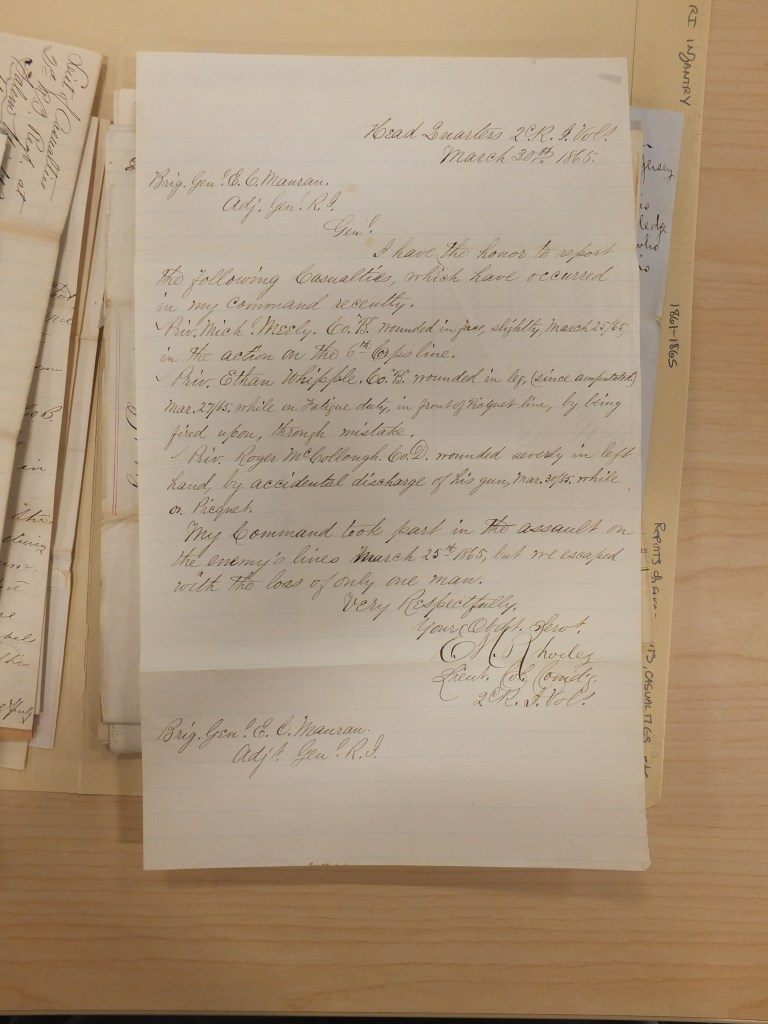 Head Quarters 2d R. I. Vols.
March 30th 1865.
Brig. Genl. E. C. Mauran.
Adj. Genl. R. I.
Genl.
I have the honor to report
the following Casualties, which have occurred
in my command recently.
✓ Priv. Mich. Co. "B". wounded in slightly, March 25/65,
in the action on the 6th Corps line.
✓ Priv. Ethan Whipple. Co. "B". wounded in leg, (since amputated)
Mar. 27/65. while on Fatigue duty, in front of Picquet line, by being
fired upon, through mistake.
✓ Priv. Roger McCollough. Co. D. wounded severly in left
hand, by accidental discharge of his gun, Mar. 30/65. while
on Picquet.
My Command took part in the assault on
the enemy's lines March 25th 1865, but we escaped
with the loss of only one man.
Very Respectfully.
Your Obdt. Servt.
E. H. Rhodes
Lieut. Col. Comdg.
2d R. I. Vols.
Brig. Genl. E. C. Mauran.
Adjt. Genl. R. I.
RI INFANTRY
1861-1865
Reports of
, CASUALTIES
List of Casualties
2d R.I. Regt at
Jersey
is
ledge
who
is
in
the